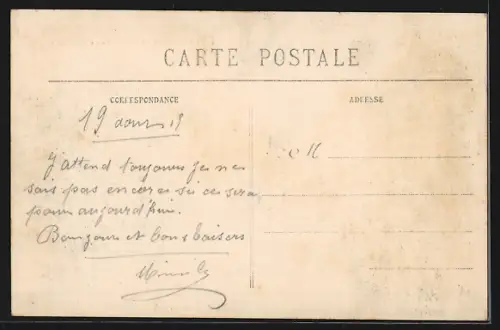 CARTE POSTALE
CORRESPONDANCE
ADRESSE
19
J'attend toujours je ne
sais pas encore si ce sera
pour aujourd'hui.
Bonjour et bons baisers